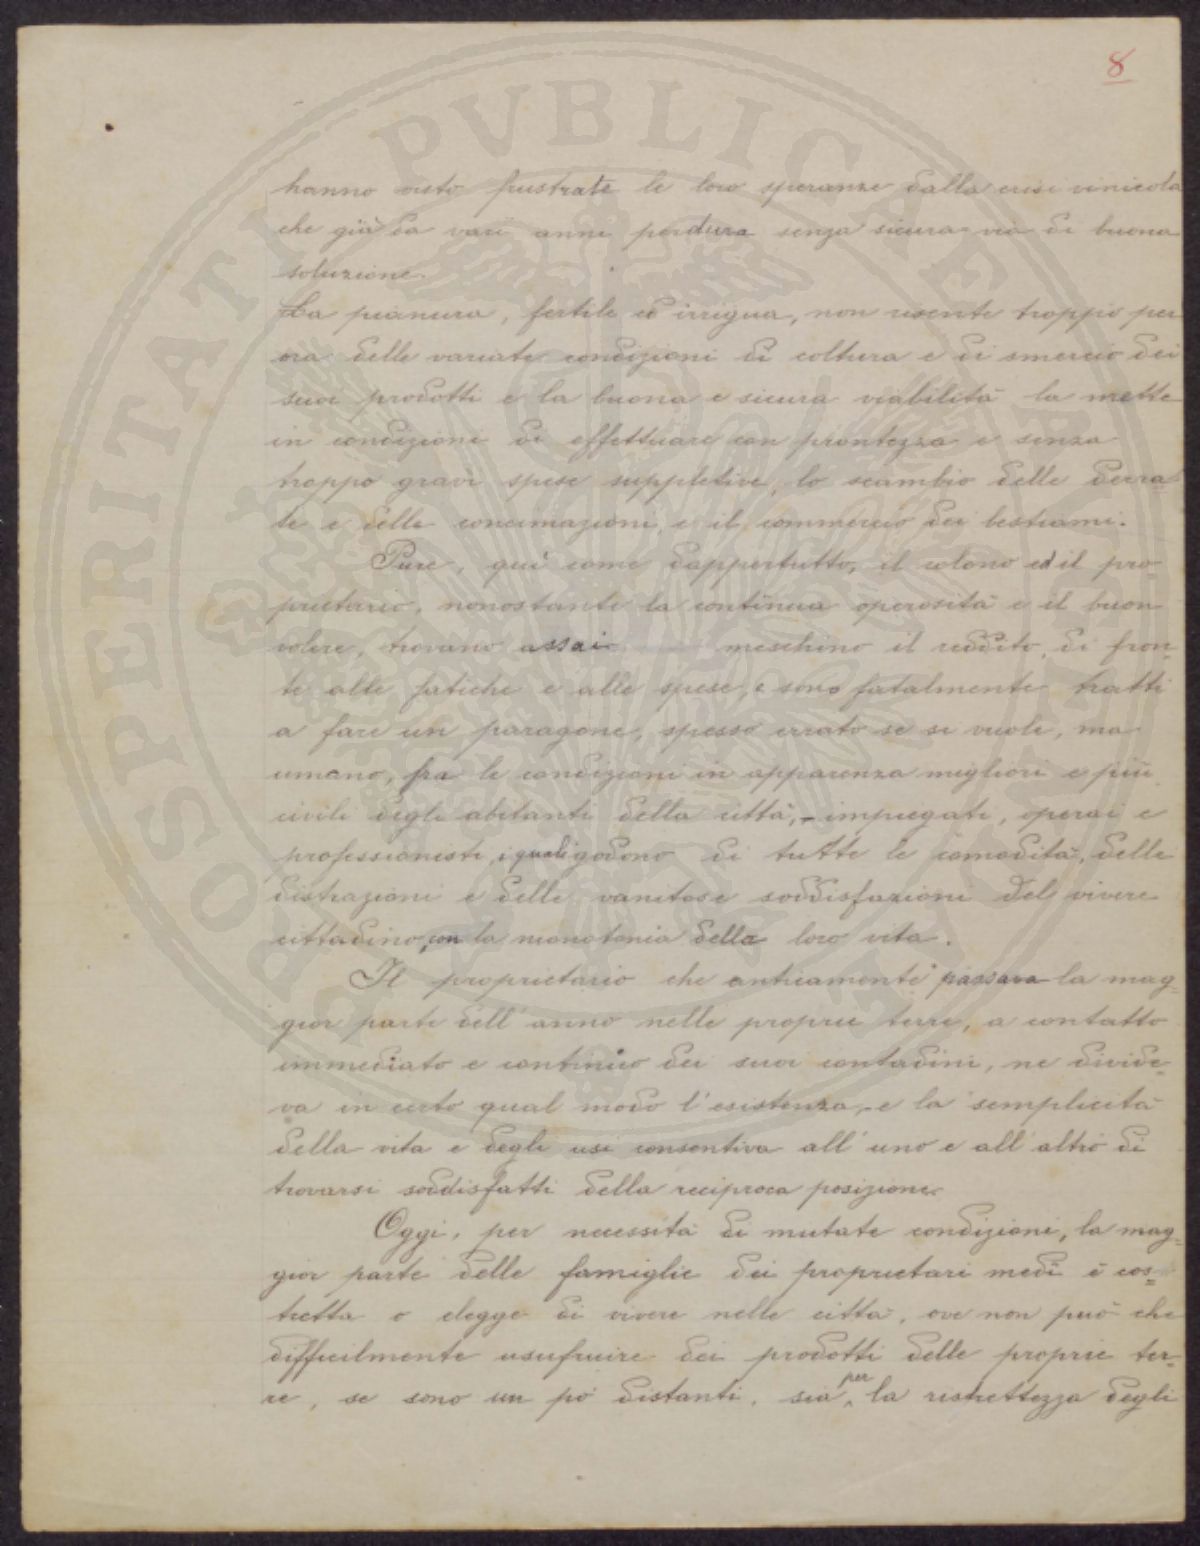 8
hanno visto frustrate le loro speranze dalla crisi vinicola
che già da vari anni perdura senza sicura via di buona
soluzione.
La pianura, fertile ed irrigua, non risente troppo per
ora delle variate condizioni di coltura e di smercio dei
suoi prodotti e la buona e sicura viabilità la mette
in condizioni di effettuare con prontezza e senza
troppo gravi spese suppletive, lo scambio delle derra-
te e delle concimazioni, e il commercio dei bestiami.
Pure, qui come dappertutto, il colono ed il pro
prietario, nonostante la continua operosità e il buon
volere, trovano assai meschino il reddito, di fron-
te alle fatiche e alle spese, e sono fatalmente tratti
a fare un paragone, spesso errato se si vuole, ma
umano, fra le condizioni in apparenza migliori e più
civili degli abitanti della città, - impiegati, operai e
professionisti, i quali godono di tutte le comodità, delle
distrazioni e delle vanitose soddisfazioni del vivere
cittadino, con la monotonia della loro vita.
Il proprietario che anticamente passava la mag-
gior parte dell'anno nelle proprie terre, a contatto
immediato e continuo dei suoi contadini, ne divide-
va in certo qual modo l'esistenza, e la semplicità
della vita e degli usi consentiva all'uno e all'altro di
trovarsi soddisfatti della reciproca posizione.
Oggi, per necessità di mutate condizioni, la mag-
gior parte delle famiglie dei proprietari medi è cos-
tretta o elegge di vivere nelle città, ove non può che
difficilmente usufruire dei prodotti delle proprie ter-
re, se sono un pò distanti, sia per la ristrettezza degli
PROSPERITATI PVBLICAE AVGENDAE